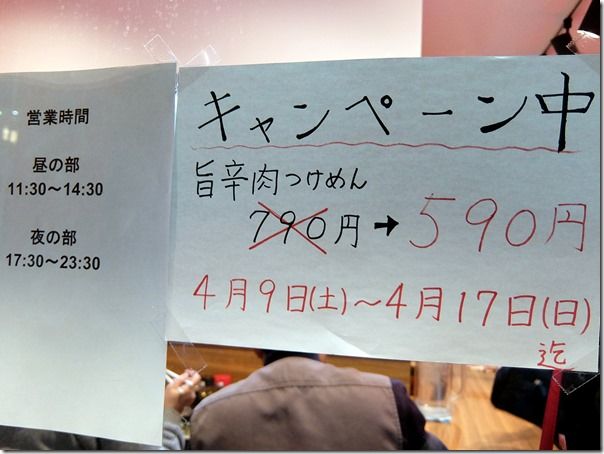 営業時間
昼の部
11:30～14:30
夜の部
17:30～23:30
キャンペーン中
旨辛肉つけめん
790円→590円
4月9日(土)～4月17日(日)
迄